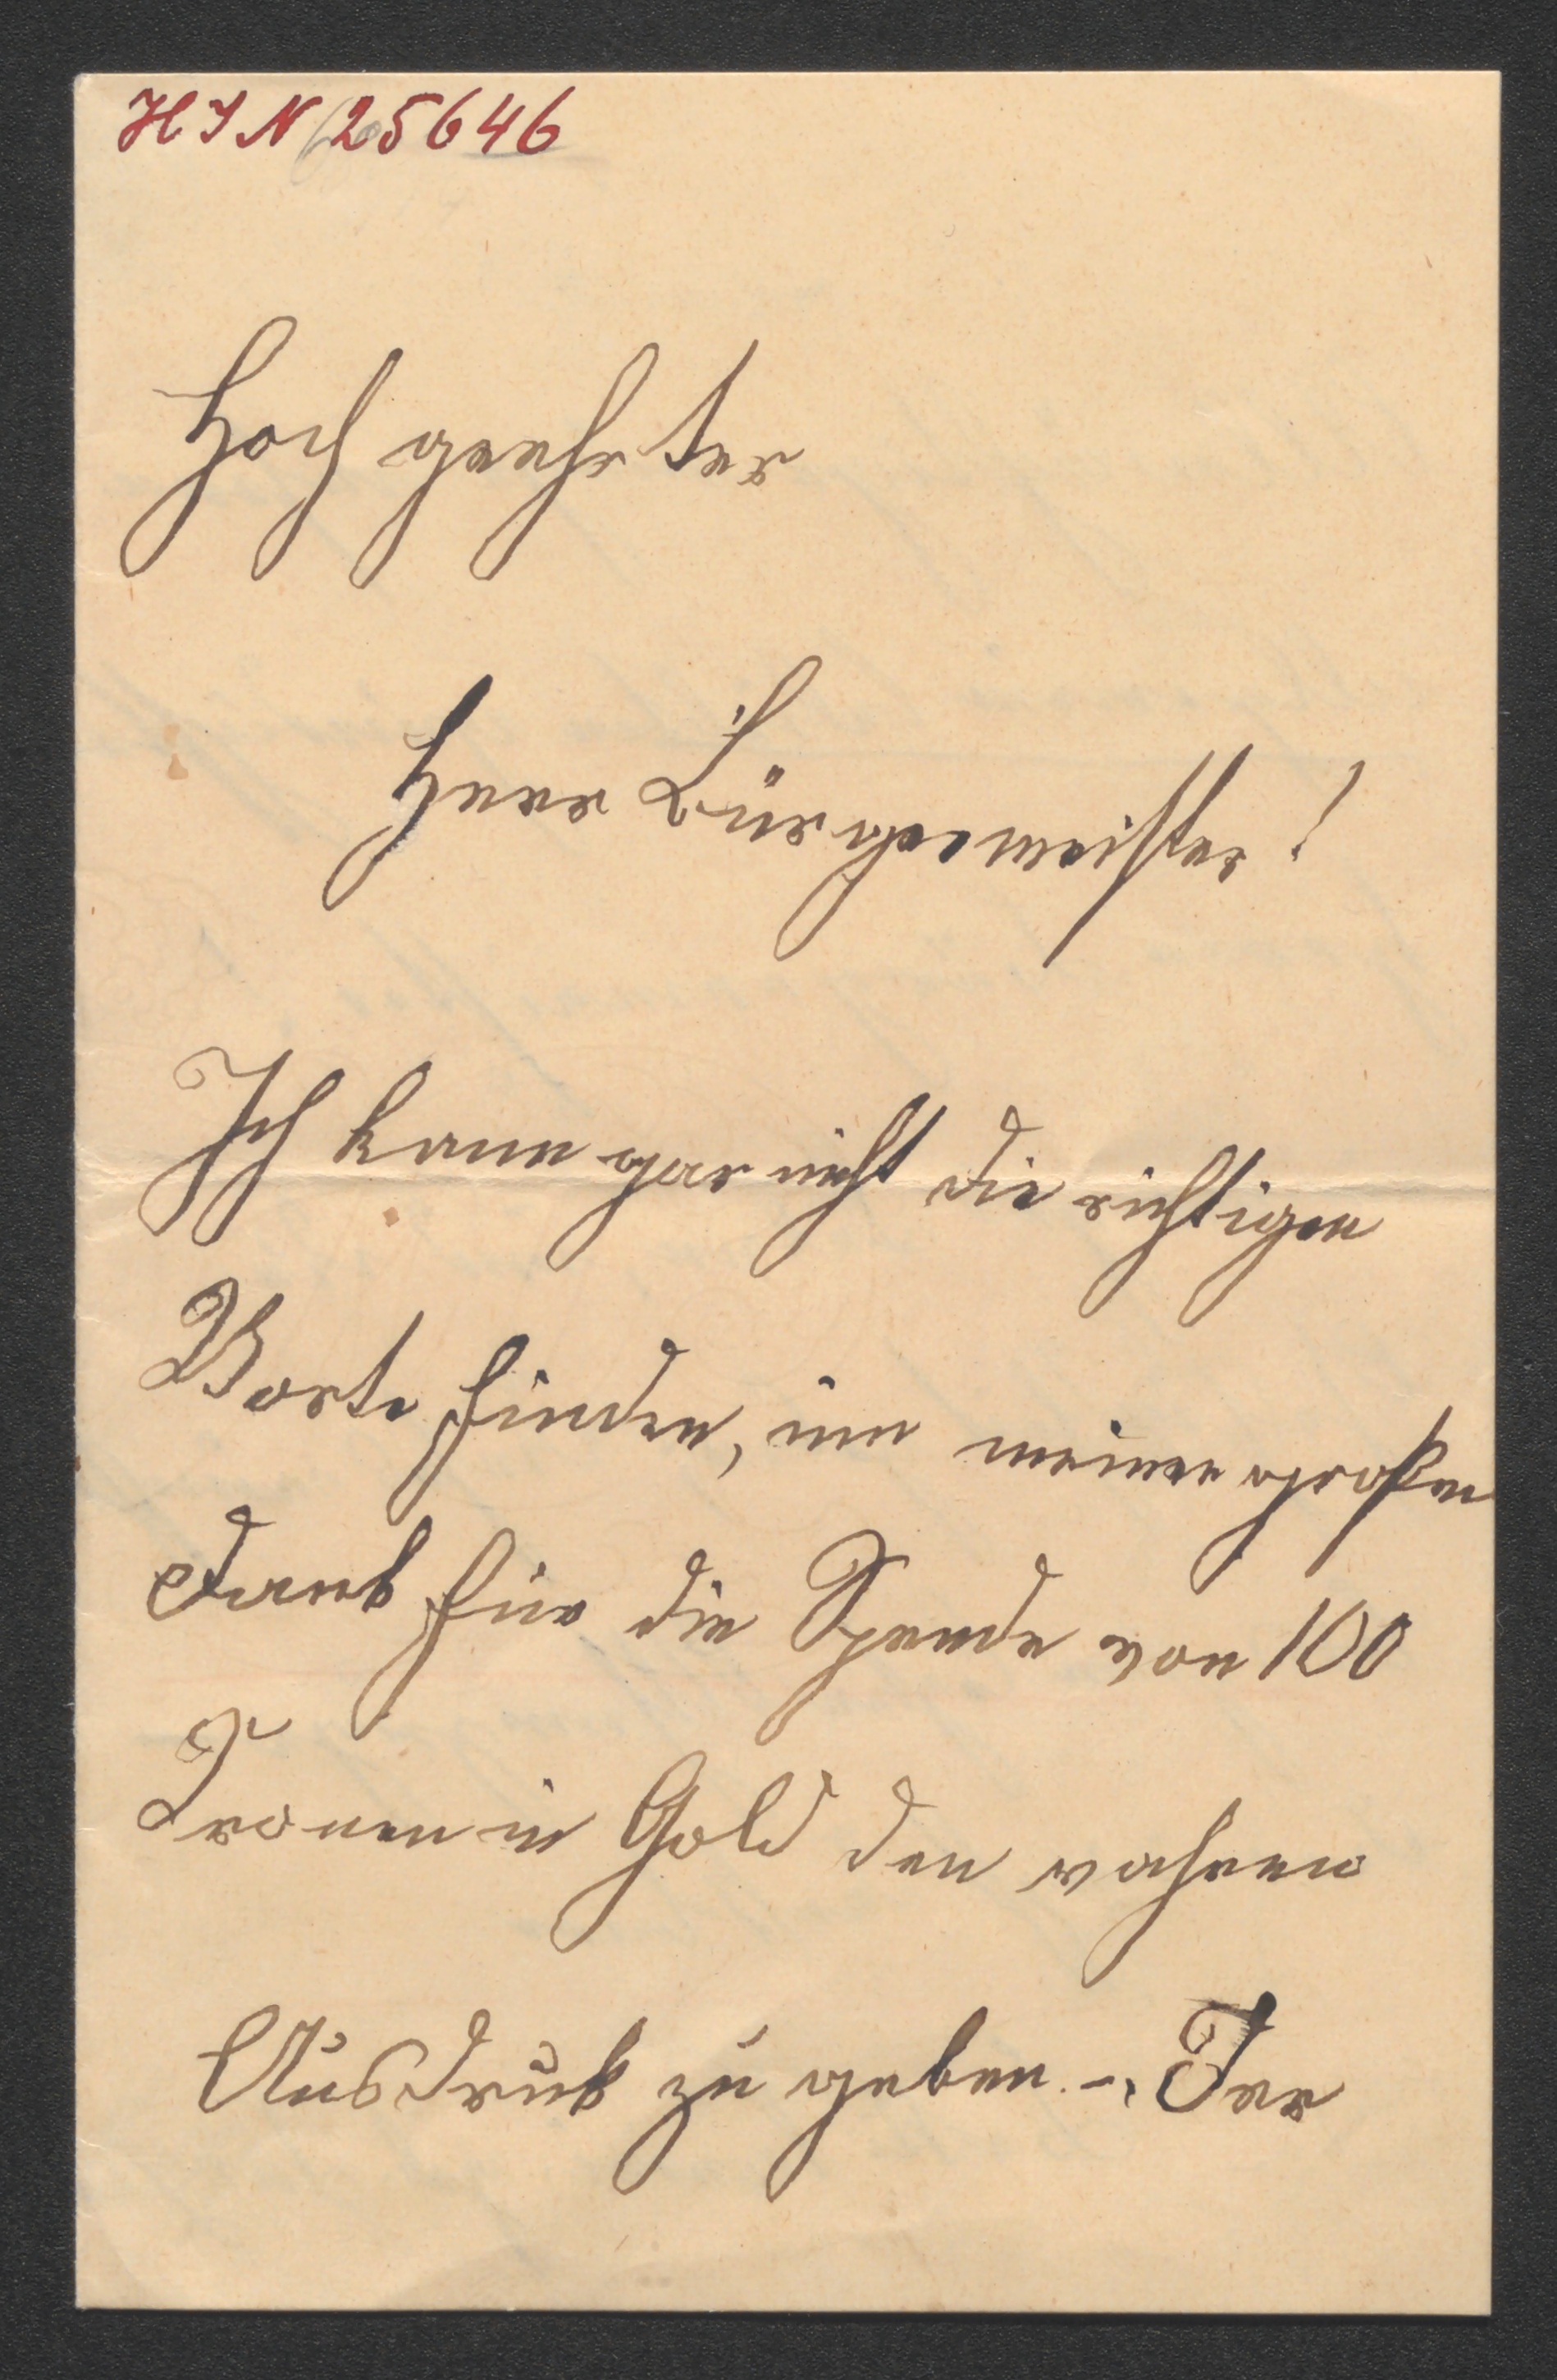 H I N 25646
Hoch geehrter
Herr Bürgermeister!
Ich kann gar nicht die richtigen
Worte finden, um meinen großen
Dank für die Spende von 100
Kronen in Gold den wahren
Ausdruck zu geben. - Der